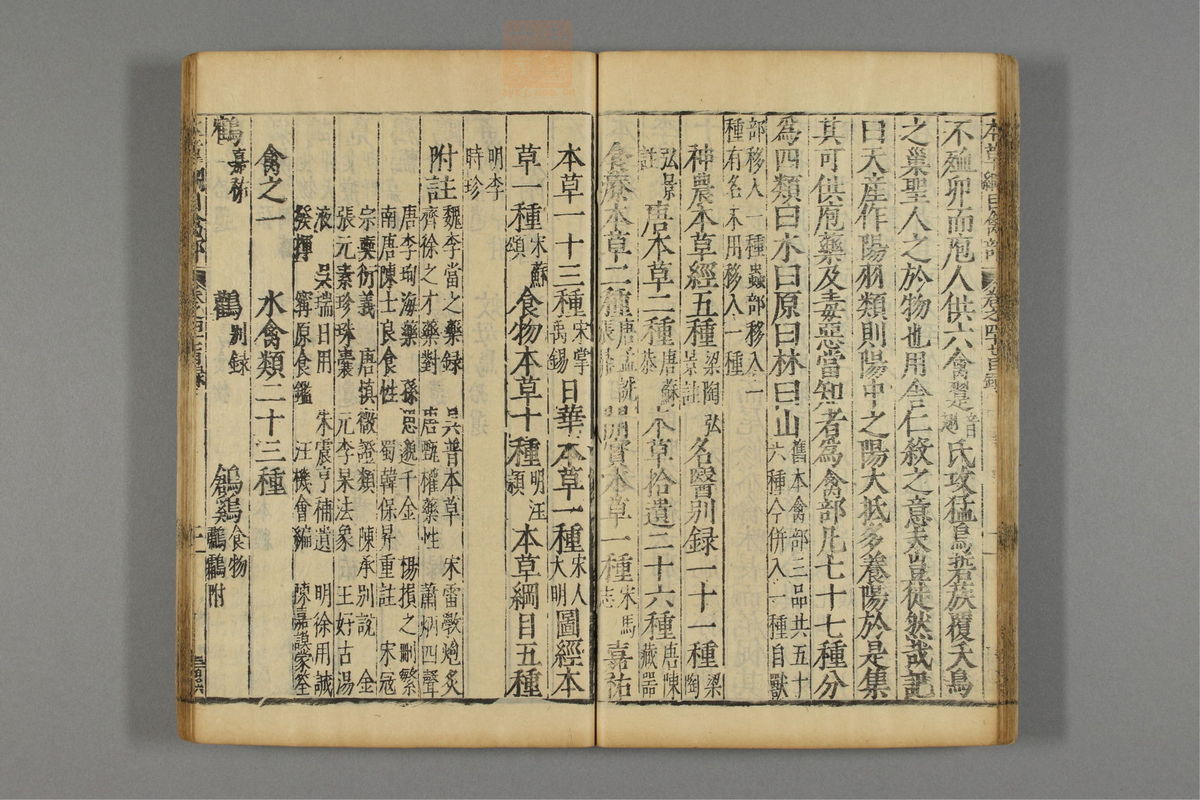 本草綱目禽部
不殈卵而庖人供六禽翨氏攻猛鳥硩蔟覆夭鳥
之巢聖人之於物也用舍仁殺之意夫豈徒然哉記
曰天産作陽羽類則陽中之陽大抵多養陽於是集
其可供庖藥及毒惡當知者為禽部凡七十七種分
為四類曰水曰原曰林曰山舊本禽部三品共五十六種今併入一種自獸
部移入一種蟲部移入一種有名未用移入一種
神農本草經五種梁陶弘景註 名醫別録一十一種梁陶
弘景註 唐本草二種唐蘇恭 本草拾遺二十六種唐陳藏器
食療本草二種唐孟詵張鼎 開寶本草一種宋馬志 嘉祐
本草一十三種宋掌禹錫 日華本草一種宋人大明 圖經本
草一種宋蘇頌 食物本草十種明汪穎 本草綱目五種
明李時珍
附註魏李當之藥録 吳普本草 宋雷斆炮炙
齊徐之才藥對 唐甄權藥性 蕭炳四聲
唐李珣海藥 孫思邈千金 楊損之刪繁
南唐陳士良食性 蜀韓保昇重註 宋寇
宗奭衍義 唐慎微證類 陳承別說 金
張元素珍珠囊 元李杲法象 王好古湯
液 吳瑞日用 朱震亨補遺 明徐用誠
發揮 寗原食鑑 汪機會編 陳嘉謨蒙筌
禽之一 水禽類二十三種
鶴嘉祐 鸛別録 鶬鷄食物 鸘鸘附